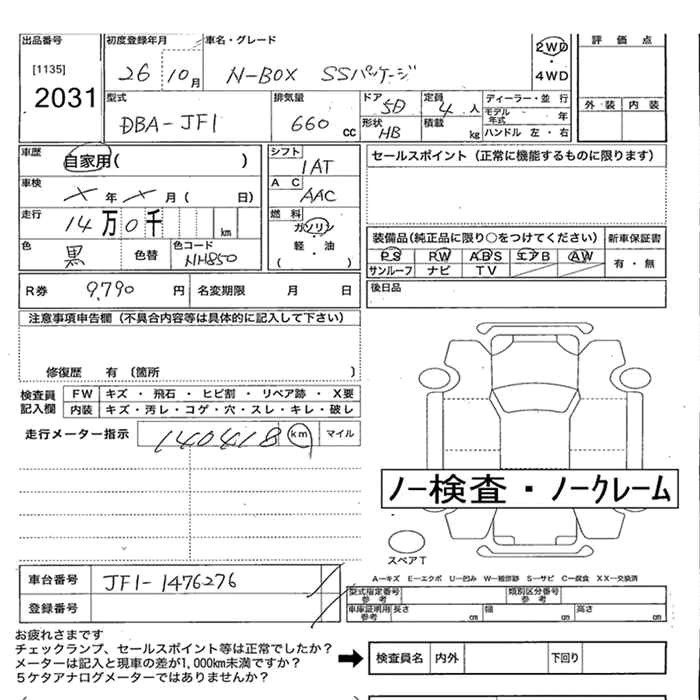 出品番号 初度登録年月 車名・グレード 評価点
[1135] 26 10月 N-BOX SSパッケージ 2WD・4WD
2031 外装 内装
型式 排気量 ドア 定員 ディーラー・並行
DBA-JF1 660cc 5D 4人 モデル年式 年
形状 HB 積載 kg ハンドル 左・右
車歴 自家用( ) シフト 1AT セールスポイント（正常に機能するものに限ります）
車検 ×年×月( 日) AC AAC
走行 14万0千 km 燃料 ガソリン 軽・油 ( )
色 黒 色替 色コード NH850
装備品(純正品に限り○をつけてください) 新車保証書
PS PW ABS エアB AW 有・無
サンルーフ ナビ TV
R券 9,790円 名変期限 月 日 後日品
注意事項申告欄（不具合内容等は具体的に記入して下さい）
修復歴 有（箇所 ）
検査員記入欄 FW キズ・飛石・ヒビ割・リペア跡・X要
内装 キズ・汚レ・コゲ・穴・スレ・キレ・破レ
走行メーター指示 140418 km マイル
ノー検査・ノークレーム
スペアT
A−キズ E−エクボ U−凹み W−補修跡 S−サビ C−腐食 XX−交換済
車台番号 JF1-1476276
登録番号
型式指定番号参考 類別区分番号参考
車庫証明用参考 長さ cm 幅 cm 高さ cm
お疲れさまです
チェックランプ、セールスポイント等は正常でしたか？
メーターは記入と現車の差が1,000km未満ですか？
5ケタアナログメーターではありませんか？
検査員名 内外 下回り